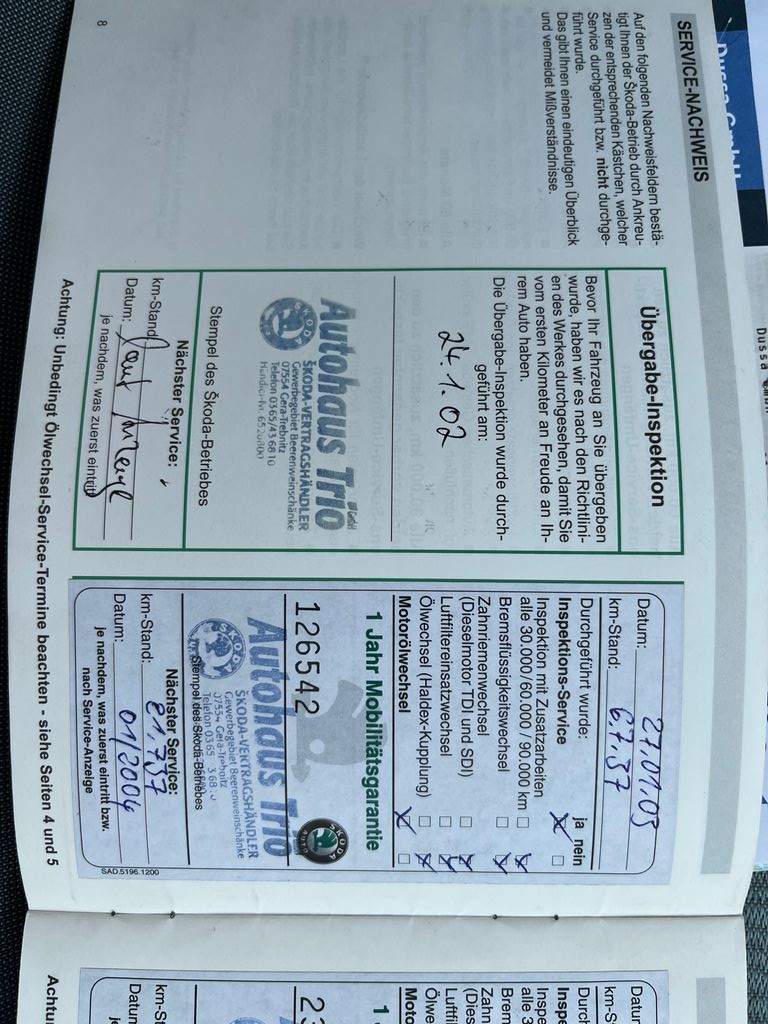 SERVICE-NACHWEIS
Auf den folgenden Nachweisfeldern bestä-
tigt Ihnen der Škoda-Betrieb durch Ankreu-
zen der entsprechenden Kästchen, welcher
Service durchgeführt bzw. nicht durchge-
führt wurde.
Das gibt Ihnen einen eindeutigen Überblick
und vermeidet Mißverständnisse.
8
Übergabe-Inspektion
Bevor Ihr Fahrzeug an Sie übergeben
wurde, haben wir es nach den Richtlini-
en des Werkes durchgesehen, damit Sie
vom ersten Kilometer an Freude an Ih-
rem Auto haben.
Die Übergabe-Inspektion wurde durch-
geführt am:
24.1.02
Autohaus Trio
GmbH
ŠKODA-VERTRAGSHÄNDLER
Gewerbegebiet Beerenweinschänke
07554 Gera-Trebnitz
Telefon 0365/43 68 10
SKODA
Stempel des Škoda-Betriebes
Nächster Service:
km-Stand: laut Anzeige
Datum:
je nachdem, was zuerst eintritt
Achtung: Unbedingt Ölwechsel-Service-Termine beachten - siehe Seiten 4 und 5
Datum: 27.01.03
km-Stand: 67.737
Durchgeführt wurde: ja nein
Inspektions-Service
Inspektion mit Zusatzarbeiten
alle 30.000/60.000/90.000 km
Bremsflüssigkeitswechsel
Zahnriemenwechsel
(Dieselmotor TDI und SDI)
Luftfiltereinsatzwechsel
Ölwechsel (Haldex-Kupplung)
Motorölwechsel
1 Jahr Mobilitätsgarantie
SKODA
AUTO
126542
Autohaus Trio
ŠKODA-VERTRAGSHÄNDLER
Gewerbegebiet Beerenweinschänke
07554 Gera-Trebnitz
Telefon 0365
SKODA
Stempel des Škoda-Betriebes
Nächster Service:
km-Stand: 81.737
Datum: 01/2004
je nachdem, was zuerst eintritt bzw.
nach Service-Anzeige
SAD.5196.1200
Dussa GmbH
Dussa GmbH
Datum
km-St
Durch
Inspe
Inspe
alle 3
Brem
Zahn
(Dies
Luftfil
Ölwe
Moto
1
23
km-St
Datum
je
Achtu